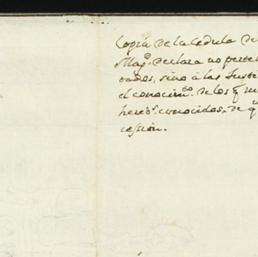 Copia de la Cedula de
Mag.d declara no perte
cados, sino á las Justi
el conocim.to de los q.e m
hered.s conocidos, de q.
cesion.